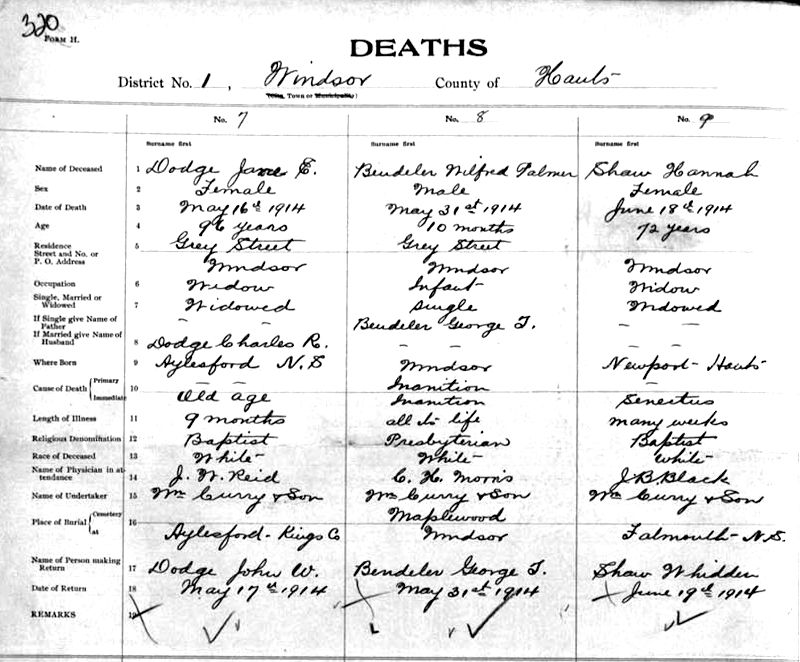 320
FORM H.
DEATHS
District No. 1, Windsor County of Hants
(City, Town or Municipality)
No. 7 No. 8 No. 9
Surname first Surname first Surname first
Name of Deceased 1 Dodge Jane E. Bendeler Wilfred Palmer Shaw Hannah
Sex 2 Female Male Female
Date of Death 3 May 16th 1914 May 31st 1914 June 18th 1914
Age 4 96 years 10 months 72 years
Residence 5 Grey Street Grey Street
Street and No. or
P. O. Address Windsor Windsor Windsor
Occupation 6 Widow Infant Widow
Single, Married or
Widowed 7 Widowed Single Widowed
If Single give Name of
Father - - Bendeler George T. - -
If Married give Name of
Husband 8 Dodge Charles R. - -
Where Born 9 Aylesford N.S Windsor Newport - Hants
Cause of Death { Primary 10 - Inanition -
Immediate Old age Inanition Senectus
Length of Illness 11 9 months all its life many weeks
Religious Denomination 12 Baptist Presbyterian Baptist
Race of Deceased 13 White White White
Name of Physician in at-
tendance 14 J. W. Reid C. H. Morris J B Black
Name of Undertaker 15 Wm Curry & Son Wm Curry & Son Wm Curry & Son
Place of Burial { Cemetery 16 Maplewood
at Aylesford - Kings Co Windsor Falmouth - N.S.
Name of Person making
Return 17 Dodge John W. Bendeler George T. Shaw Whidden
Date of Return 18 May 17th 1914 May 31st 1914 June 19th 1914
REMARKS 19